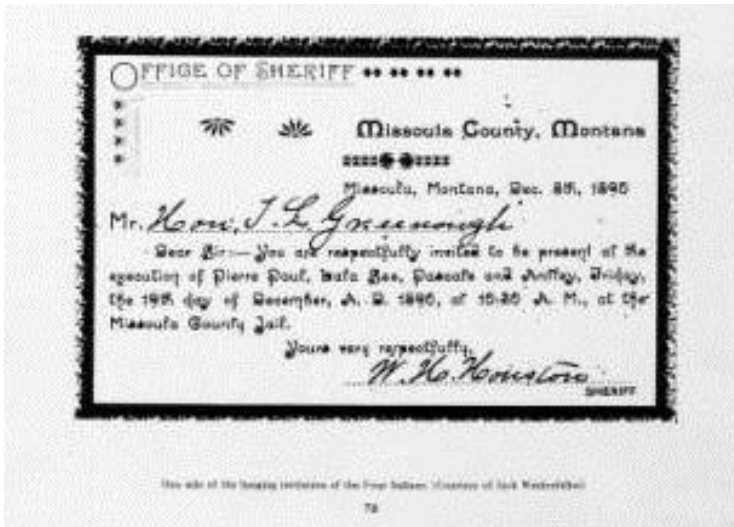 OFFICE OF SHERIFF
Missoula County, Montana
Missoula, Montana, Dec. 8th, 1890
Mr. Hon. T. L. Greenough
Dear Sir:— You are respectfully invited to be present at the
execution of Pierre Paul, Lala See, Pascale and Antley, Friday,
the 19th day of December, A. D. 1890, at A. M., at the
Missoula County Jail.
Yours very respectfully,
W. H. Houston
SHERIFF
One side of the hanging invitation of the Four Indians. (Courtesy of Jack
78